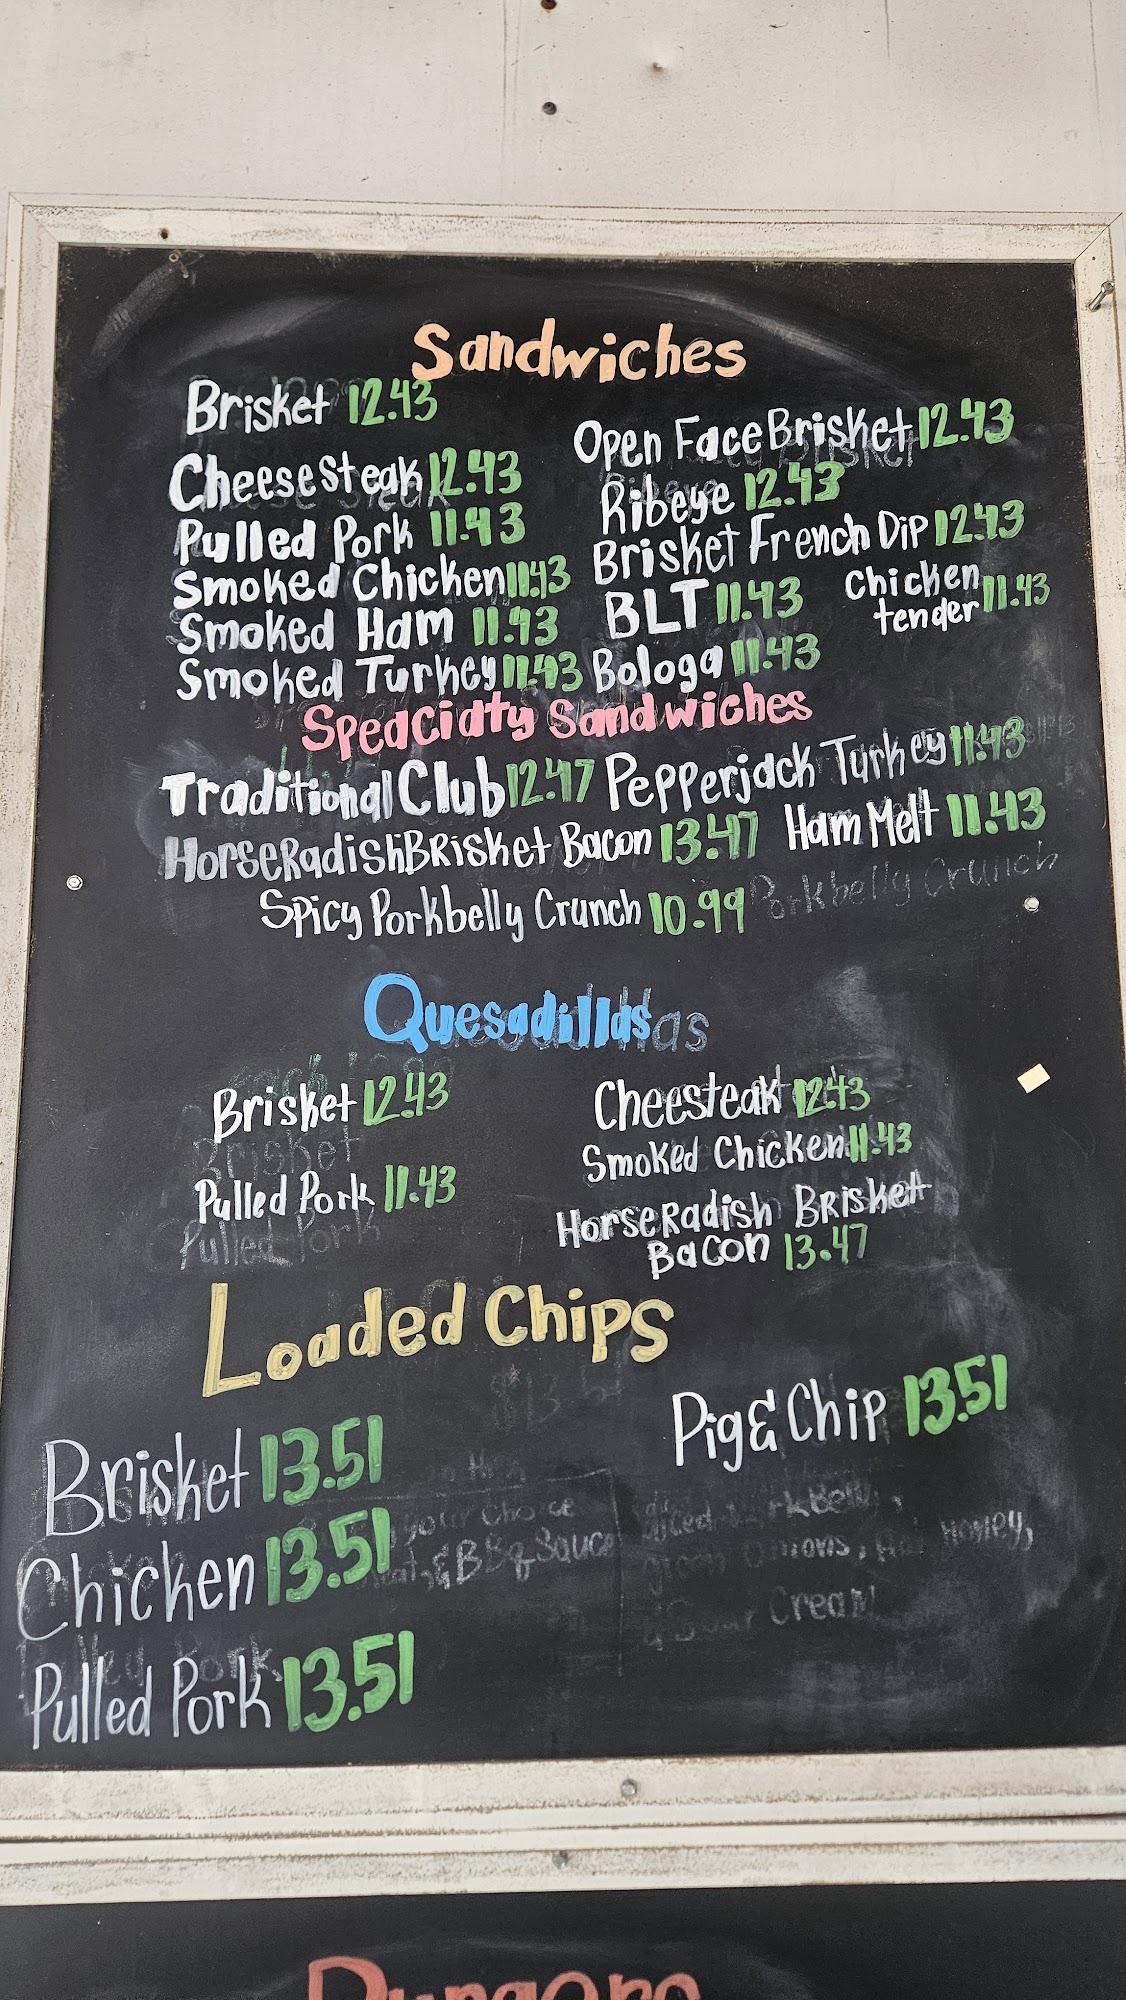 Sandwiches
Brisket 12.43
Open Face Brisket 12.43
Cheesesteak 12.43
Ribeye 12.43
Pulled Pork 11.43
Brisket French Dip 12.43
Smoked Chicken 11.43
BLT 11.43
Chicken tender 11.43
Smoked Ham 11.43
Smoked Turkey 11.43
Bologa 11.43
Spedcidty Sandwiches
Traditional Club 12.47
Pepperjack Turkey 11.43
HorseRadish Brisket Bacon 13.47
Ham Melt 11.43
Spicy Porkbelly Crunch 10.99
Porkbelly Crunch
Quesadillas
Brisket 12.43
Cheesteak 12.43
Brisket
Smoked Chicken 11.43
Pulled Pork 11.43
HorseRadish Brisket
Bacon 13.47
Pulled Pork
Loaded Chips
Pig & Chip 13.51
Brisket 13.51
your choice
& BBQ Sauce
Chicken 13.51
onions, Hot Honey,
& Sour Cream
Pulled Pork 13.51